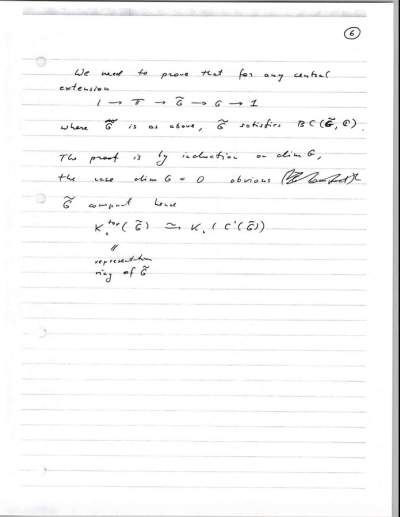 6
We need to prove that for any central
extension
1 → π → G̃ → G → 1
where G̃ is as above, G̃ satisfies BC(G̃, C).
The proof is by induction on dim G,
the case dim G = 0 obvious
G̃ compact hence
K^top(G̃) ≃ K.(C*(G̃))
"
representation
ring of G̃